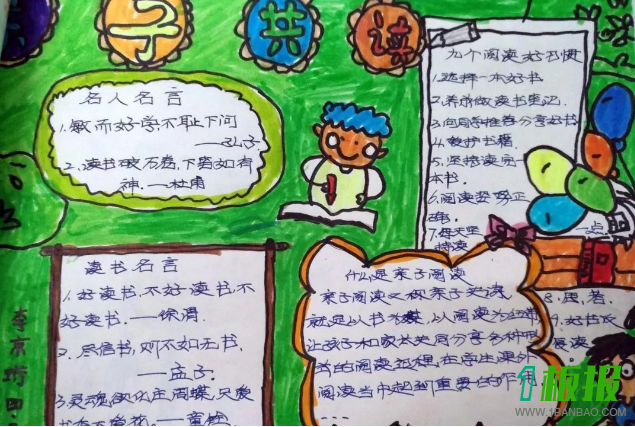 子共读
名人名言
1.敏而好学,不耻下问
——孔子
2.读书破万卷,下笔如有
神.——杜甫
九个阅读好习惯
1.选择一本好书
2.养成做读书笔记.
3.向同学推荐分享好书
4.爱护书籍
5.坚持读完一
本书.
6.阅读姿势正
确.
7.每天坚
持读
一点
8.思,考.
9.好书反
复读
读书名言
1.好读书,不好读书,不
好读书.——徐渭
2.尽信书,则不如无书.
——孟子
3.灵魂欲化庄周蝶,只爱
书香不爱花.——童铨
什么是亲子阅读
亲子阅读又称亲子共读
就是以书为媒,以阅读为纽带
让孩子和家长共同分享多种形
式的阅读过程,在学生课外
阅读当中起到重要的作用.
1板报
WWW.1BANBAO.COM